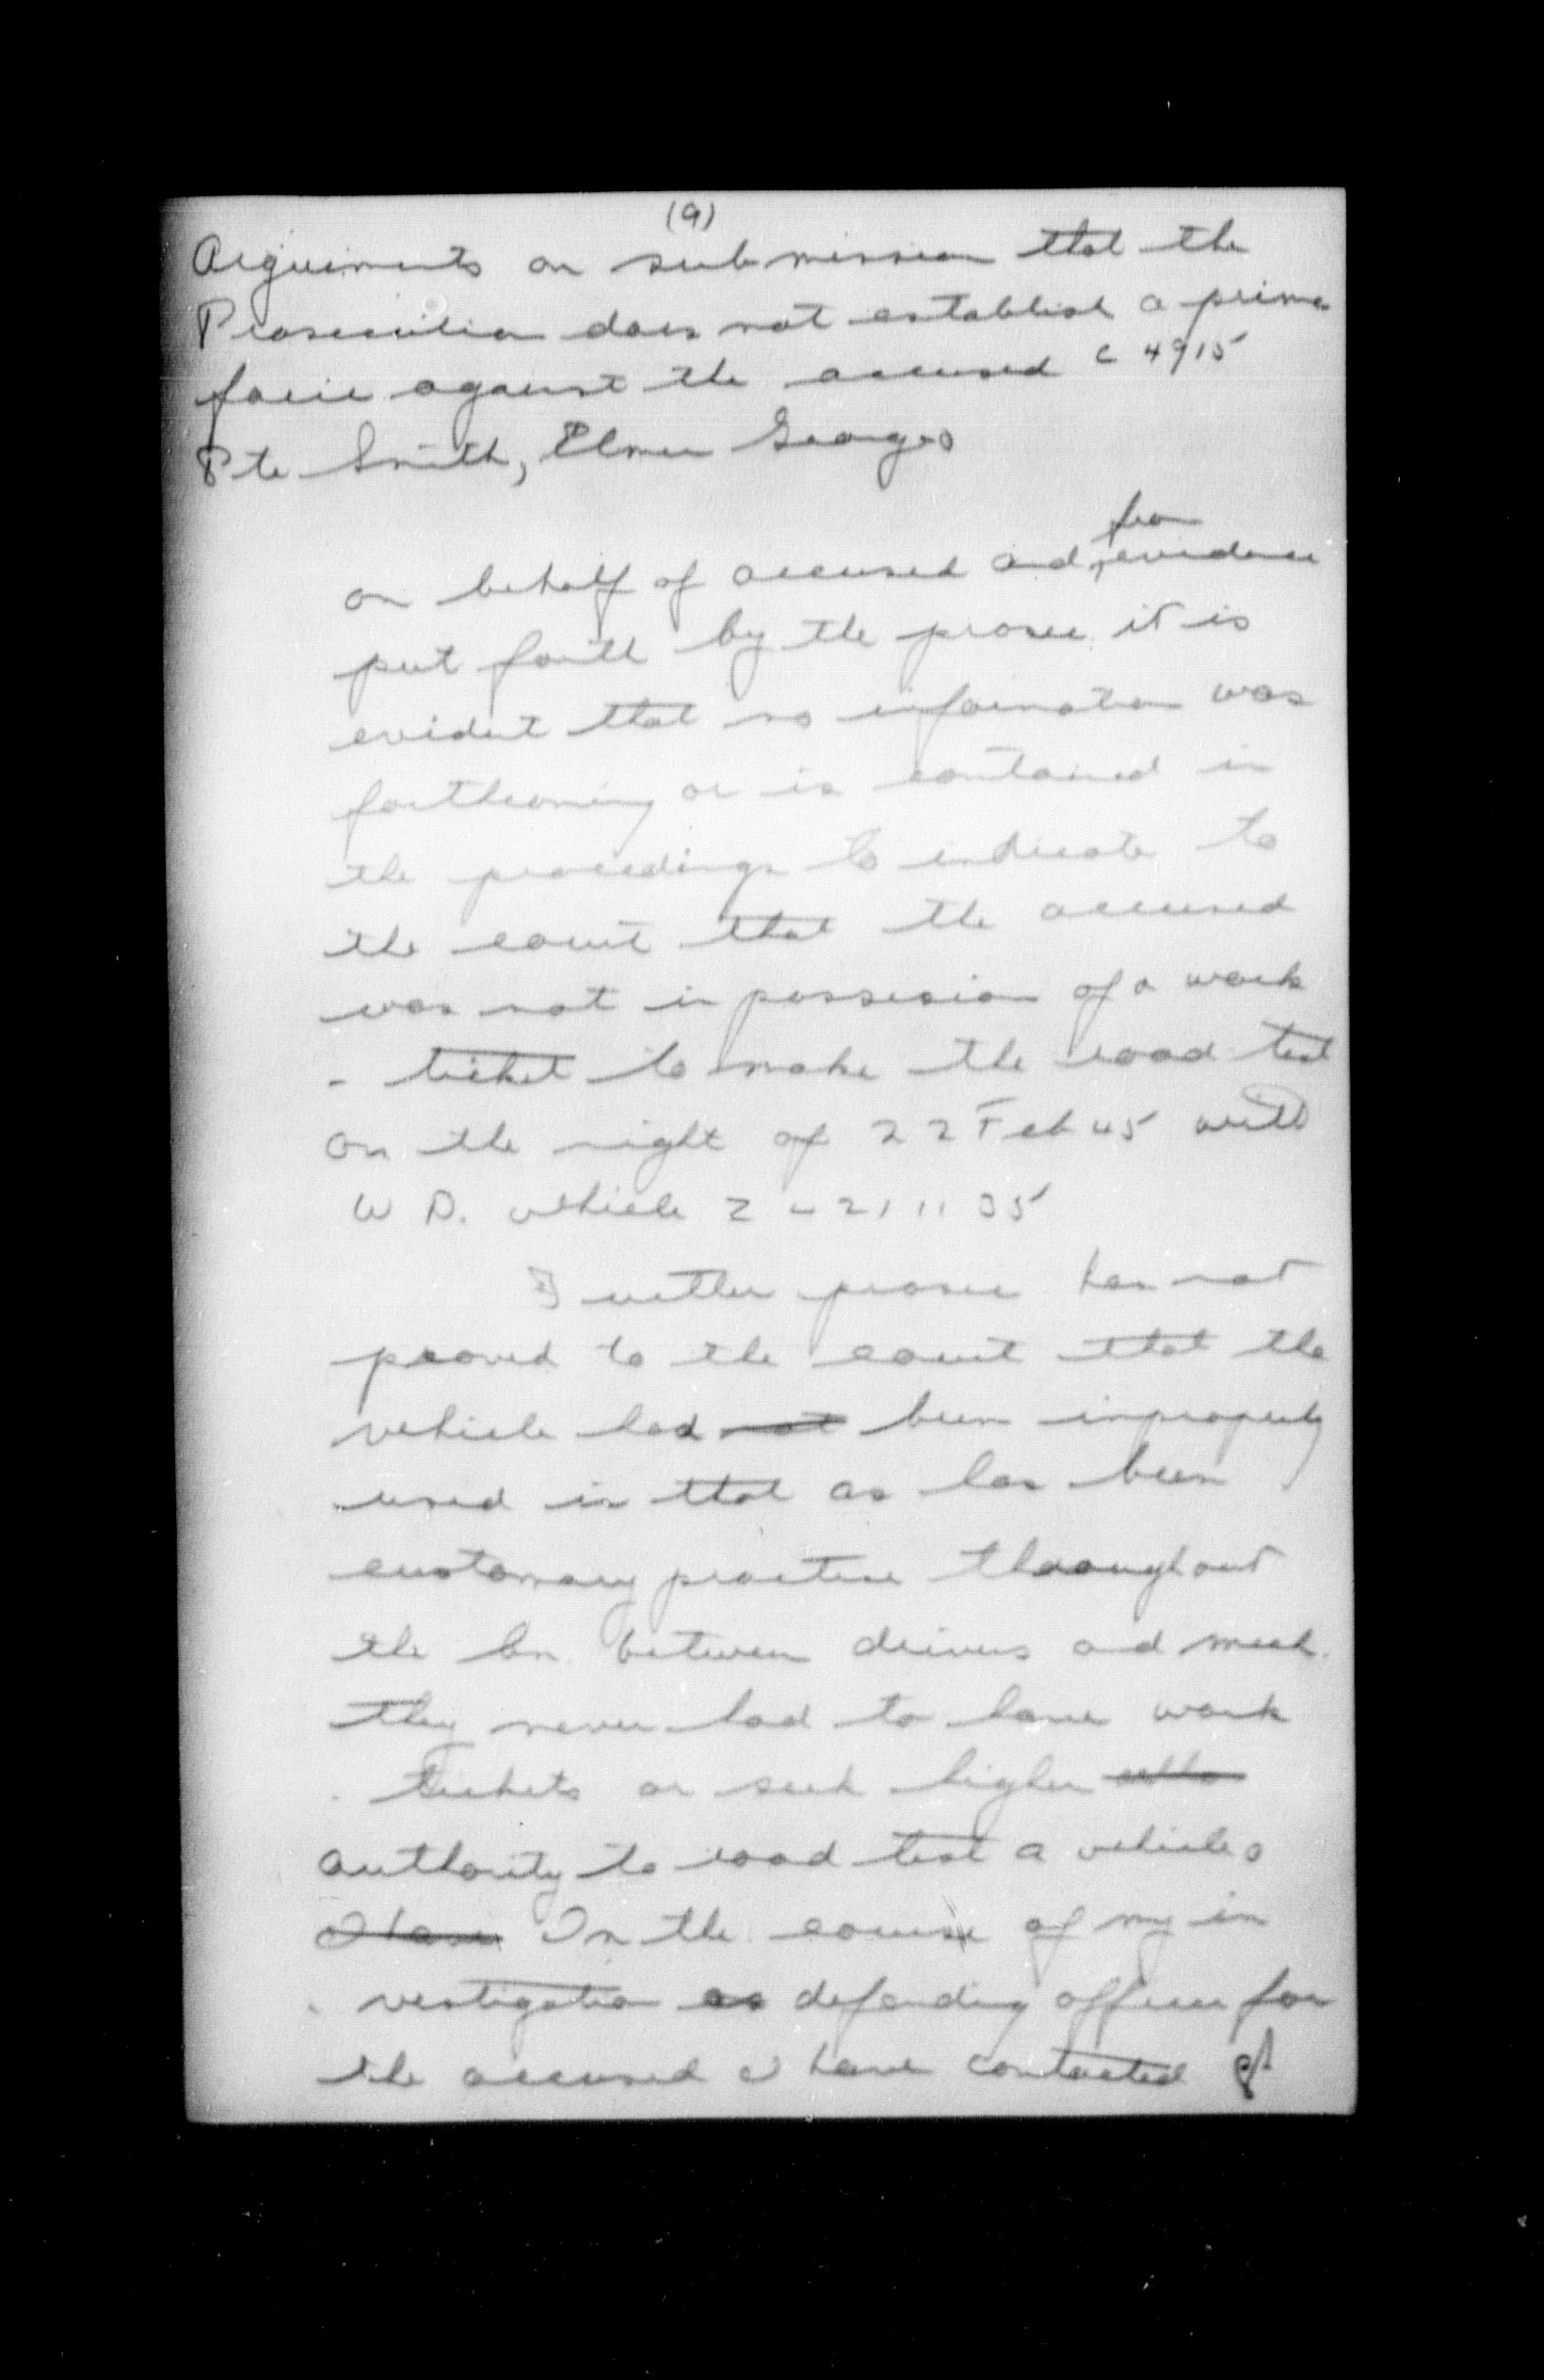 (9)
Arguements on submission that the
Prosecution does not establish a prima
facie against the accused C 4915
Pte Smith, Elmer George
from
on behalf of accused and evidence
put forth by the prosec. it is
evident that no information was
forthcoming or is contained in
the proceedings to indicate to
the court that the accused
was not in possesion of a work
- ticket to make the road test
on the night of 22 Feb 45 with
W D. vehicle Z 4211135
Further prosec has not
proved to the court that the
vehicle had not been improperly
used in that as has been
customary practise throughout
the bn. between drivers and mech.
they never had to have work
tickets or seek higher
authority to road test a vehicle.
I have In the course of my in
- vestigation as defending officer for
the accused I have contacted